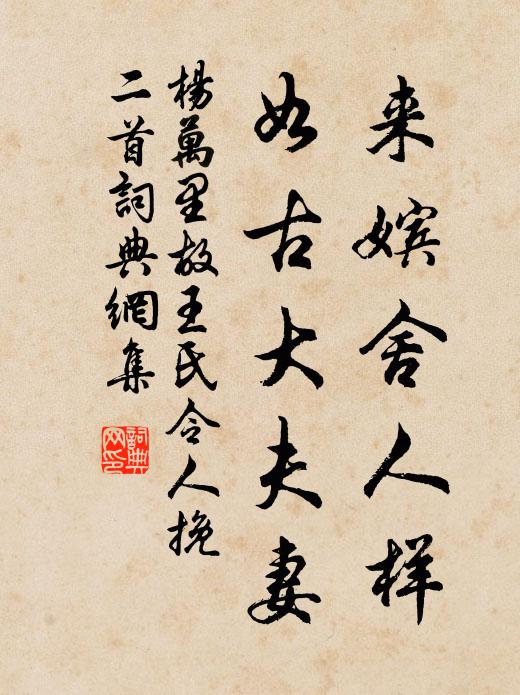 来嬪舍人样
如古大夫妻
楊萬里故王氏令人挽
二首詞典網集
詞典
网印